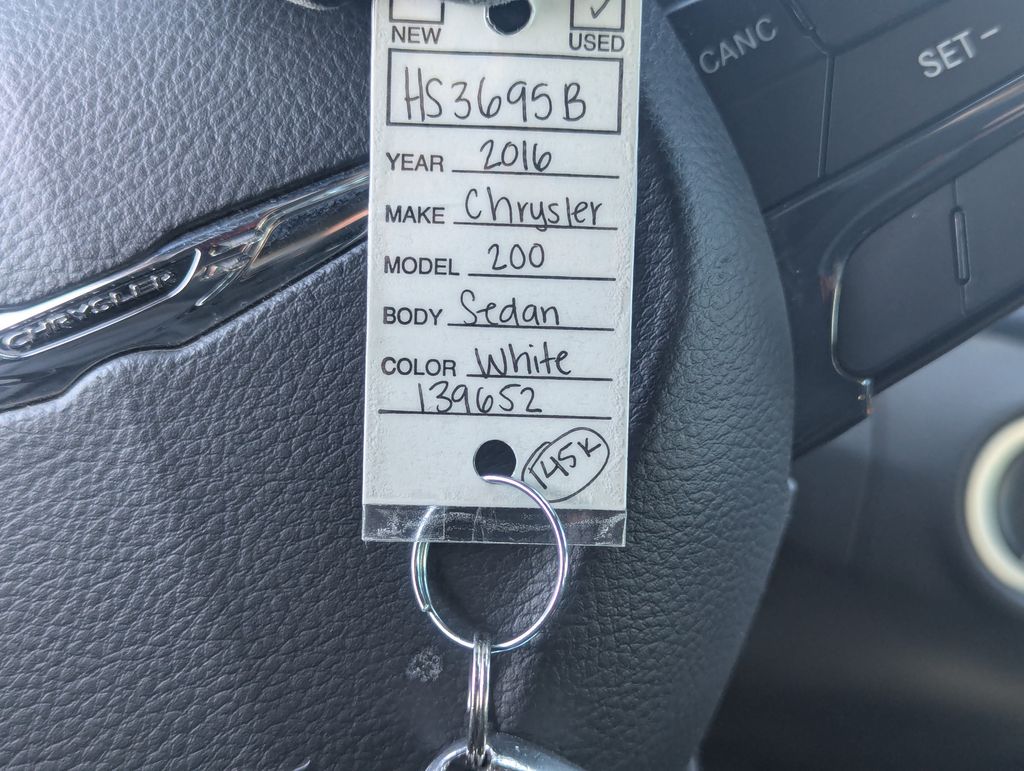 NEW USED
HS3695B
YEAR 2016
MAKE Chrysler
MODEL 200
BODY Sedan
COLOR White
139652
145K
CANC
SET -
CHRYSLER